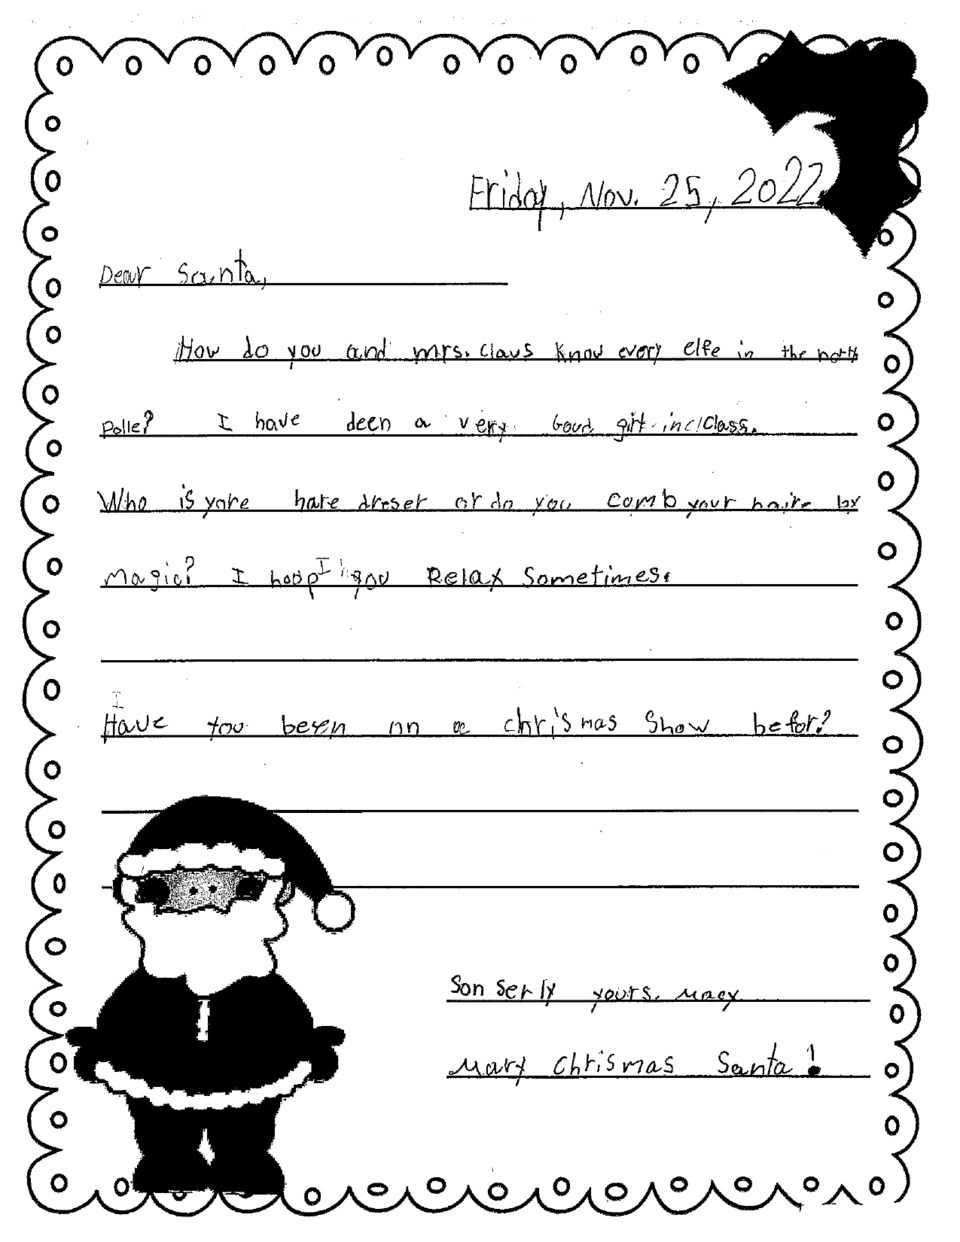 Friday, Nov. 25, 2022
Dear Santa,
How do you and mrs. Claus Know every elfe in the north
Polle? I have deen a very Good girl in Class.
Who is yore hare dreser or do you comb your haire by
Magic? I hoop you Relax Sometimes.
Have you been on a chrismas Show befor?
Son serly yours, Macy
Mary Chrismas Santa!